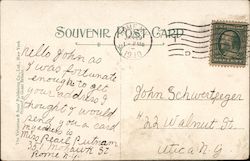 SOUVENIR POST CARD
1910
Hello John as
I was fortunate
enough to get
your address I
thought I would
send you a card
my address is
Miss Pearl Putnam
251 Mohawk St
Rome N.Y.
John Schwertzger
#22 Walnut St.
Utica N.Y